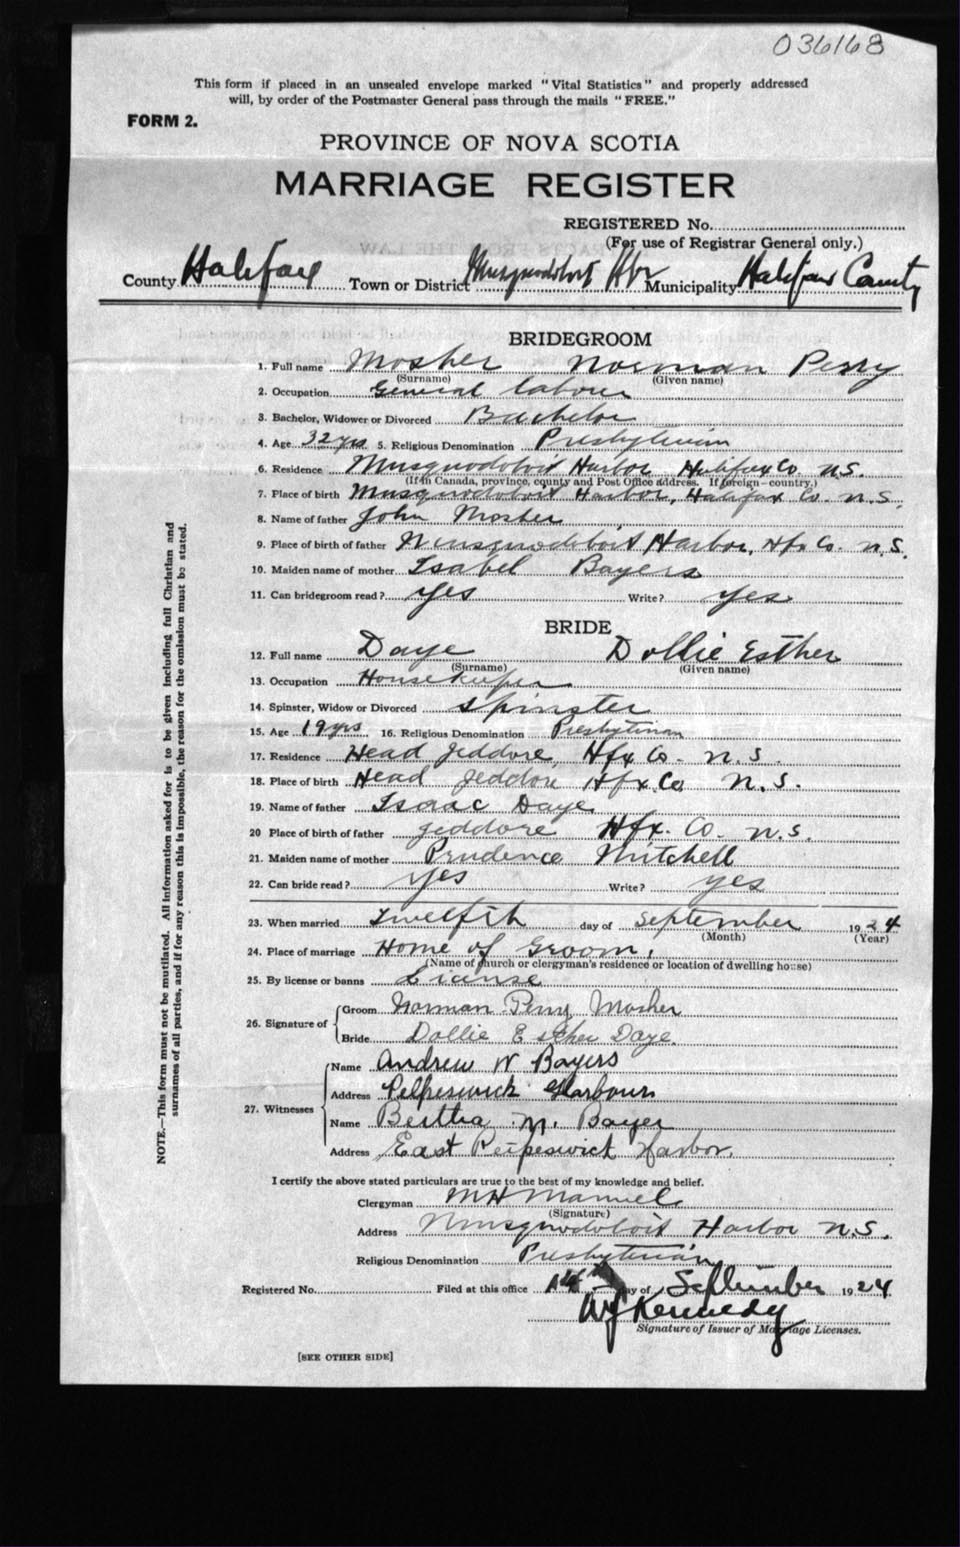 036168
This form if placed in an unsealed envelope marked "Vital Statistics" and properly addressed
will, by order of the Postmaster General pass through the mails "FREE."
FORM 2.
PROVINCE OF NOVA SCOTIA
MARRIAGE REGISTER
REGISTERED No.
(For use of Registrar General only.)
County Halifax Town or District Musquodoboit Hbr Municipality Halifax County
BRIDEGROOM
1. Full name Mosher Norman Perry
(Surname) (Given name)
2. Occupation General labourer
3. Bachelor, Widower or Divorced Bachelor
4. Age 32 yrs. 5. Religious Denomination Presbyterian
6. Residence Musquodoboit Harbor Halifax Co. N.S.
(If in Canada, province, county and Post Office address. If foreign—country.)
7. Place of birth Musquodoboit Harbor, Halifax Co. N.S.
8. Name of father John Mosher
9. Place of birth of father Musquodoboit Harbor, Hfx Co. N.S.
10. Maiden name of mother Isabel Bayers
11. Can bridegroom read? Yes Write? Yes
BRIDE
12. Full name Daye Dollie Esther
(Surname) (Given name)
13. Occupation Housekeeper
14. Spinster, Widow or Divorced Spinster
15. Age 19 yrs 16. Religious Denomination Presbyterian
17. Residence Head Jeddore, Hfx Co. N.S.
18. Place of birth Head Jeddore Hfx Co N.S.
19. Name of father Isaac Daye
20 Place of birth of father Jeddore Hfx. Co. N.S.
21. Maiden name of mother Prudence Mitchell
22. Can bride read? Yes Write? Yes
23. When married Twelfth day of September 1924
(Month) (Year)
24. Place of marriage Home of Groom.
(Name of church or clergyman's residence or location of dwelling house)
25. By license or banns Lianse
26. Signature of Groom Norman Perry Mosher
Bride Dollie Esther Daye.
27. Witnesses Name Andrew W Bayers
Address Petpeswick Harbour
Name Bertha M. Bayer
Address East Petpeswick Harbor.
I certify the above stated particulars are true to the best of my knowledge and belief.
Clergyman M H Manuel
(Signature)
Address Musquodoboit Harbor N.S.
Religious Denomination Presbyterian
Registered No. Filed at this office day of September 1924
Kennedy
Signature of Issuer of Marriage Licenses.
[SEE OTHER SIDE]
NOTE.—This form must not be mutilated. All information asked for is to be given including full Christian and
surnames of all parties, and if for any reason this is impossible, the reason for the omission must be stated.